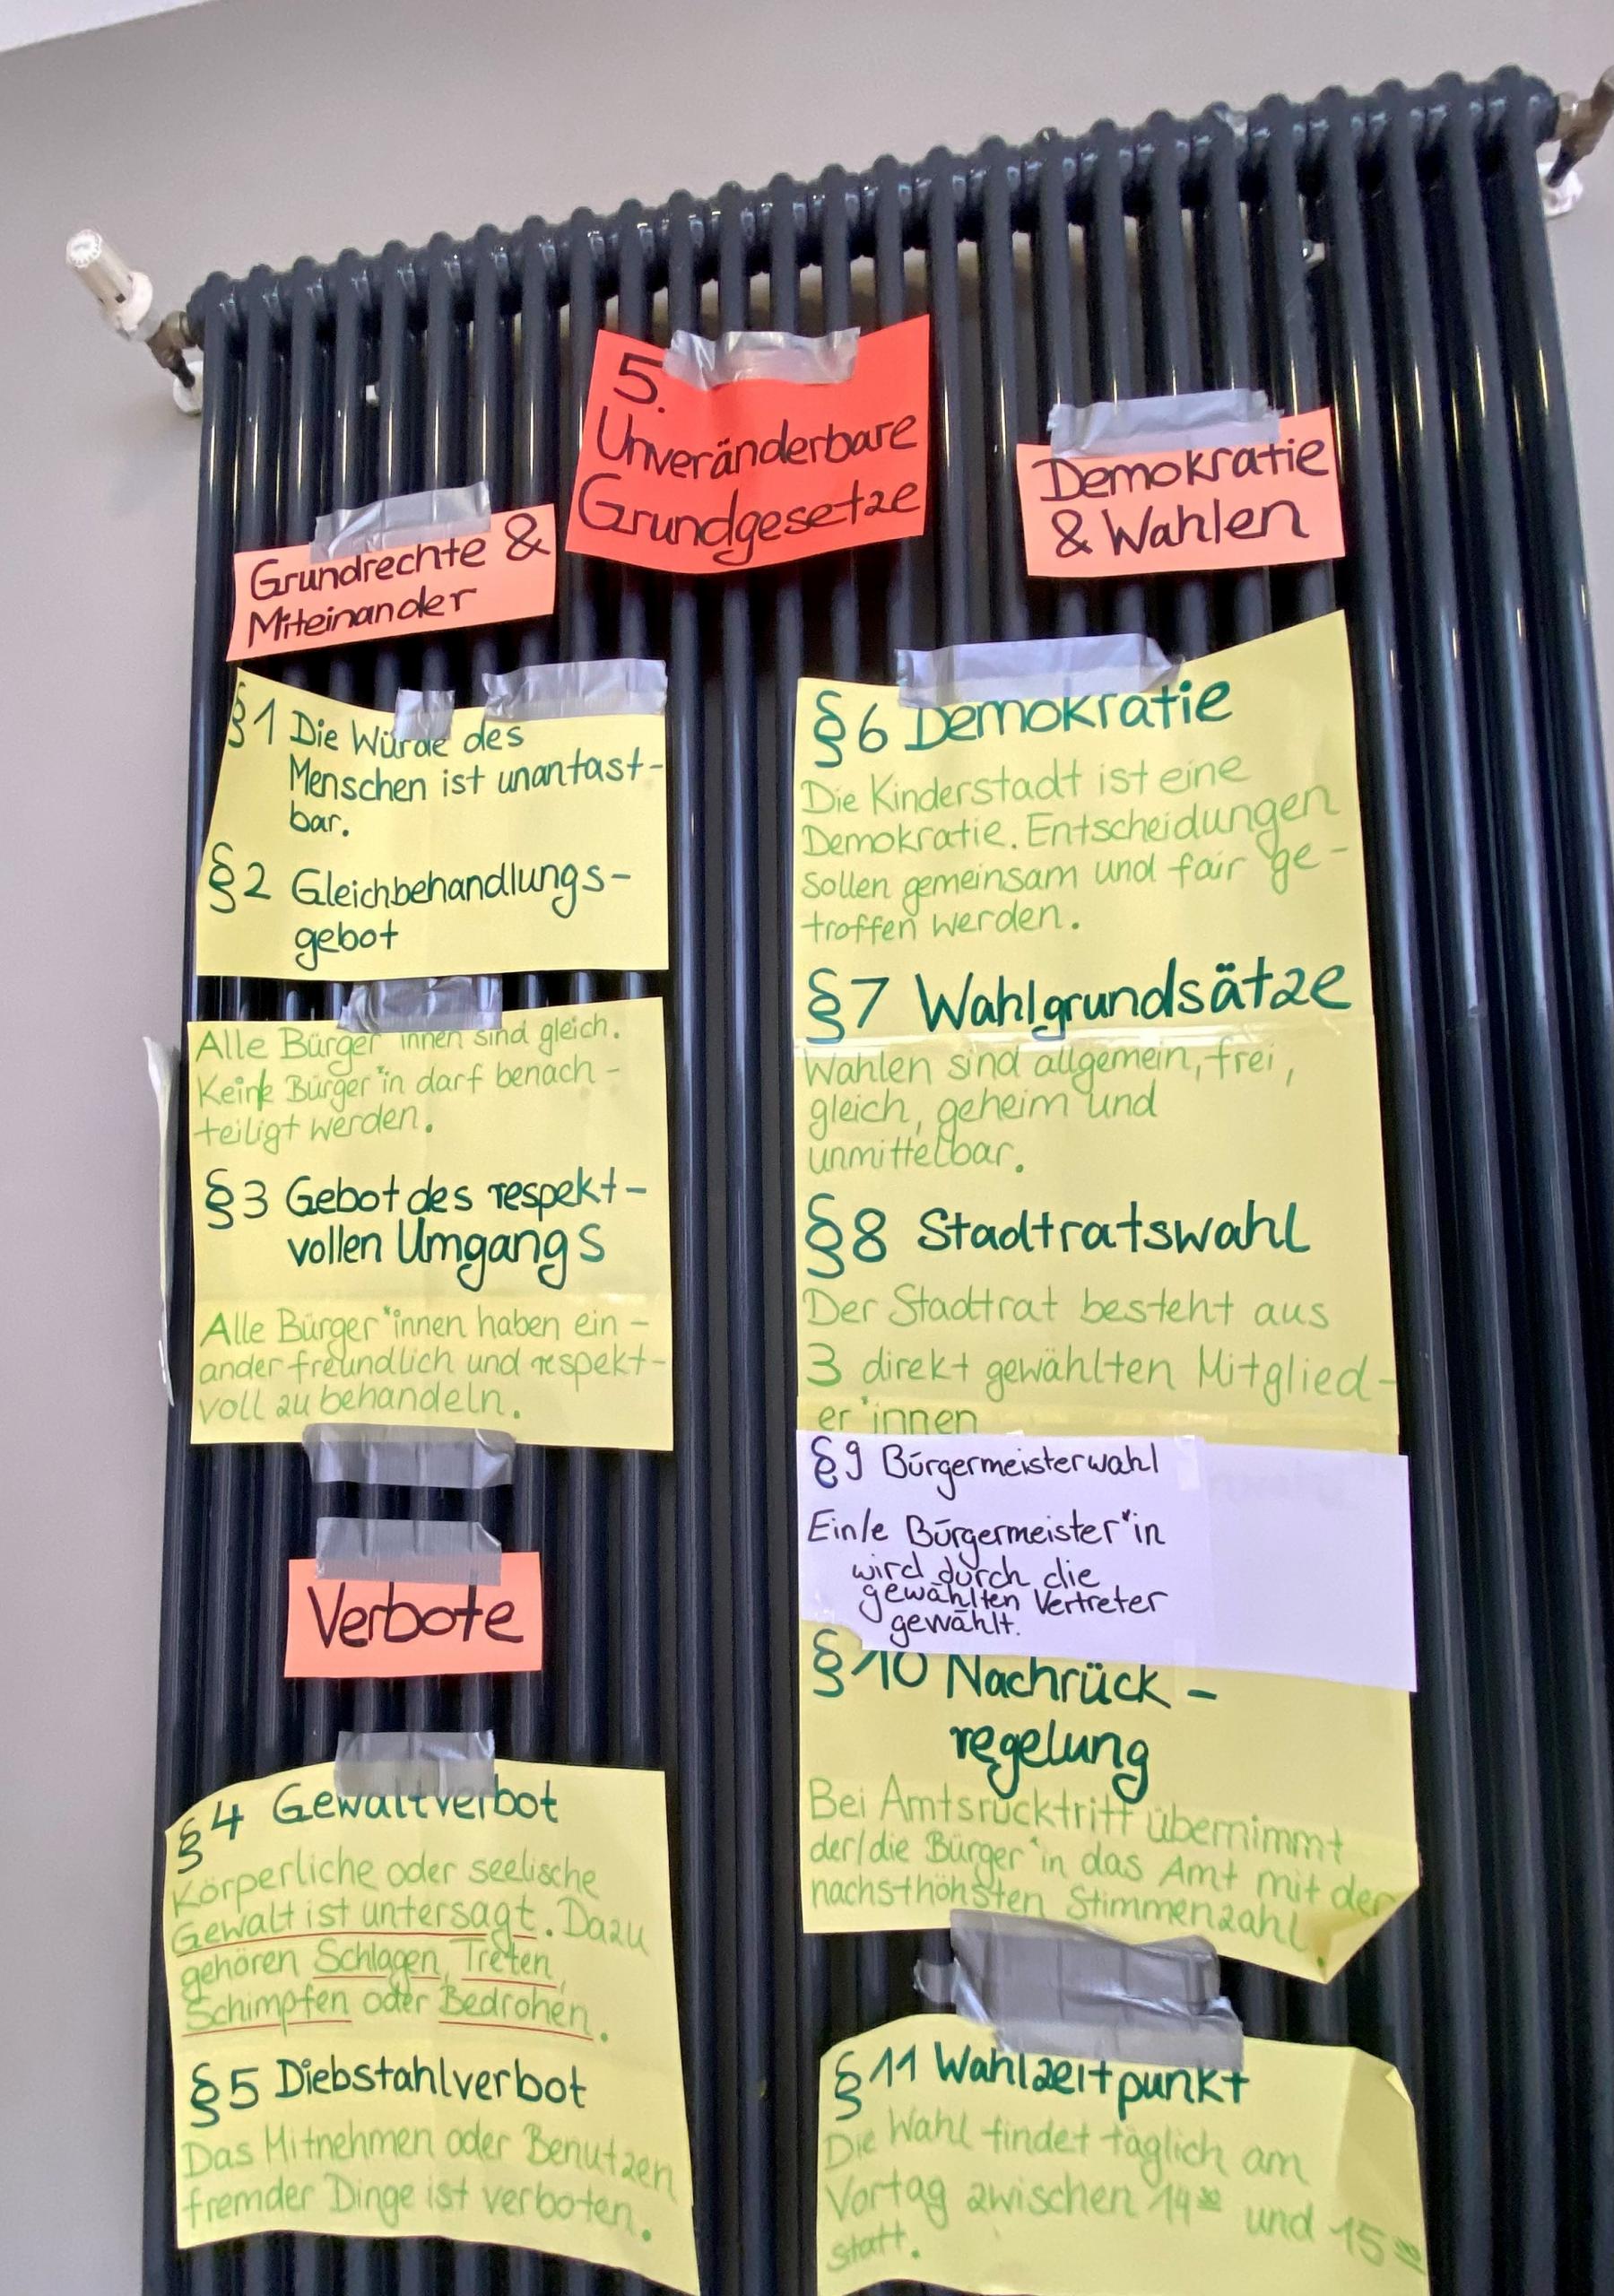 5.
Unveränderbare
Grundgesetze
Grundrechte &
Miteinander
§1 Die Würde des
Menschen ist unantast-
bar.
§2 Gleichbehandlungs-
gebot
Alle Bürger*innen sind gleich.
Keine Bürger*in darf benach-
teiligt werden.
§3 Gebot des respekt-
vollen Umgangs
Alle Bürger*innen haben ein-
ander freundlich und respekt-
voll zu behandeln.
Verbote
§4 Gewaltverbot
Körperliche oder seelische
Gewalt ist untersagt. Dazu
gehören Schlagen, Treten,
Schimpfen oder Bedrohen.
§5 Diebstahlverbot
Das Mitnehmen oder Benutzen
fremder Dinge ist verboten.
Demokratie
& Wahlen
§6 Demokratie
Die Kinderstadt ist eine
Demokratie. Entscheidungen
sollen gemeinsam und fair ge-
troffen werden.
§7 Wahlgrundsätze
Wahlen sind allgemein, frei,
gleich, geheim und
unmittelbar.
§8 Stadtratswahl
Der Stadtrat besteht aus
3 direkt gewählten Mitglied-
er*innen
§9 Bürgermeisterwahl
Ein/e Bürgermeister*in
wird durch die
gewählten Vertreter
gewählt.
§10 Nachrück-
regelung
Bei Amtsrücktritt übernimmt
der/die Bürger*in das Amt mit der
nachsthöhsten Stimmenzahl.
§11 Wahlzeitpunkt
Die Wahl findet täglich am
Vortag zwischen 14⁰⁰ und 15⁰⁰
statt.